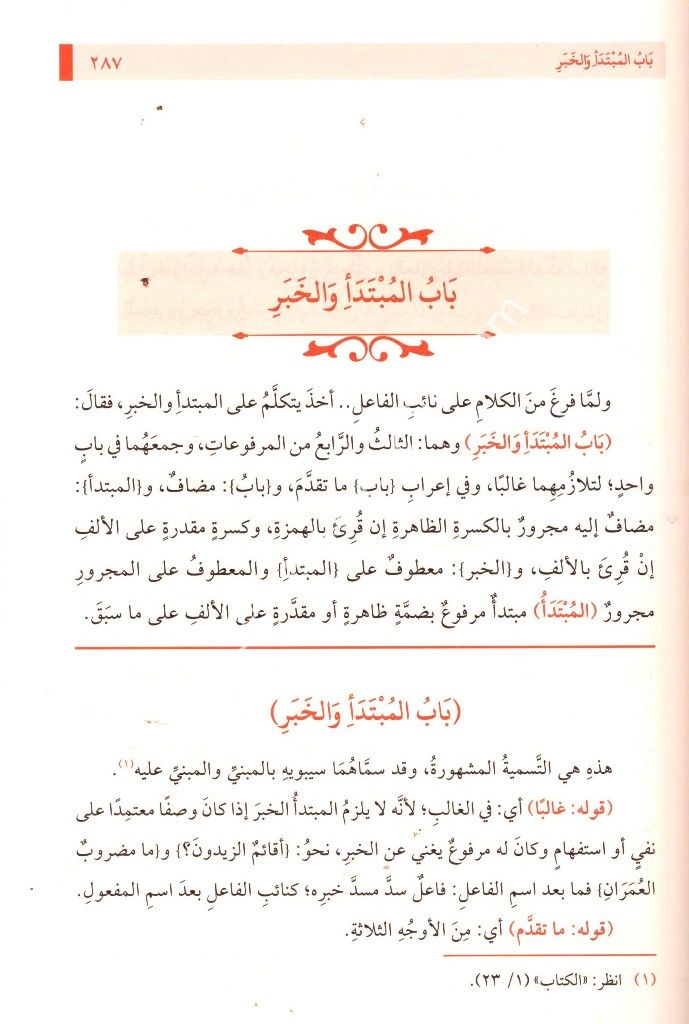 بَابُ المُبْتَدَأِ وَالخَبَرِ
٢٨٧
بَابُ المُبْتَدَأِ وَالخَبَرِ
ولمَّا فرغَ منَ الكلامِ على نائبِ الفاعلِ.. أخذَ يتكلَّمُ على المبتدأِ والخبرِ، فقالَ:
(بَابُ المُبْتَدَأِ وَالخَبَرِ) وهما: الثالثُ والرَّابعُ من المرفوعاتِ، وجمعَهُما في بابٍ
واحدٍ؛ لتلازُمِهِما غالبًا، وفي إعرابِ {باب} ما تقدَّمَ، و{بابُ}: مضافٌ، و{المبتدأ}:
مضافٌ إليه مجرورٌ بالكسرةِ الظاهرةِ إن قُرِئَ بالهمزةِ، وكسرةٍ مقدرةٍ على الألفِ
إنْ قُرِئَ بالألفِ، و{الخبر}: معطوفٌ على {المبتدأِ} والمعطوفُ على المجرورِ
مجرورٌ (المُبْتَدَأُ) مبتدأٌ مرفوعٌ بضمَّةٍ ظاهرةٍ أو مقدَّرةٍ على الألفِ على ما سبَقَ.
(بَابُ المُبْتَدَأِ وَالخَبَرِ)
هذهِ هي التَّسميةُ المشهورةُ، وقد سمَّاهُمَا سيبويهِ بالمبنيِّ والمبنيِّ عليه(١).
(قوله: غالبًا) أي: في الغالبِ؛ لأنَّه لا يلزمُ المبتدأُ الخبرَ إذا كانَ وصفًا معتمِدًا على
نفيٍ أو استفهامٍ وكانَ له مرفوعٌ يغني عن الخبرِ، نحوُ: {أقائمٌ الزيدونَ؟} و{ما مضروبٌ
العُمَرَانِ} فما بعد اسمِ الفاعلِ: فاعلٌ سدَّ مسدَّ خبرِه؛ كنائبِ الفاعلِ بعدَ اسمِ المفعولِ.
(قوله: ما تقدَّم) أي: مِنَ الأوجُهِ الثلاثةِ.
(١) انظر: «الكتاب» (١/ ٢٣).